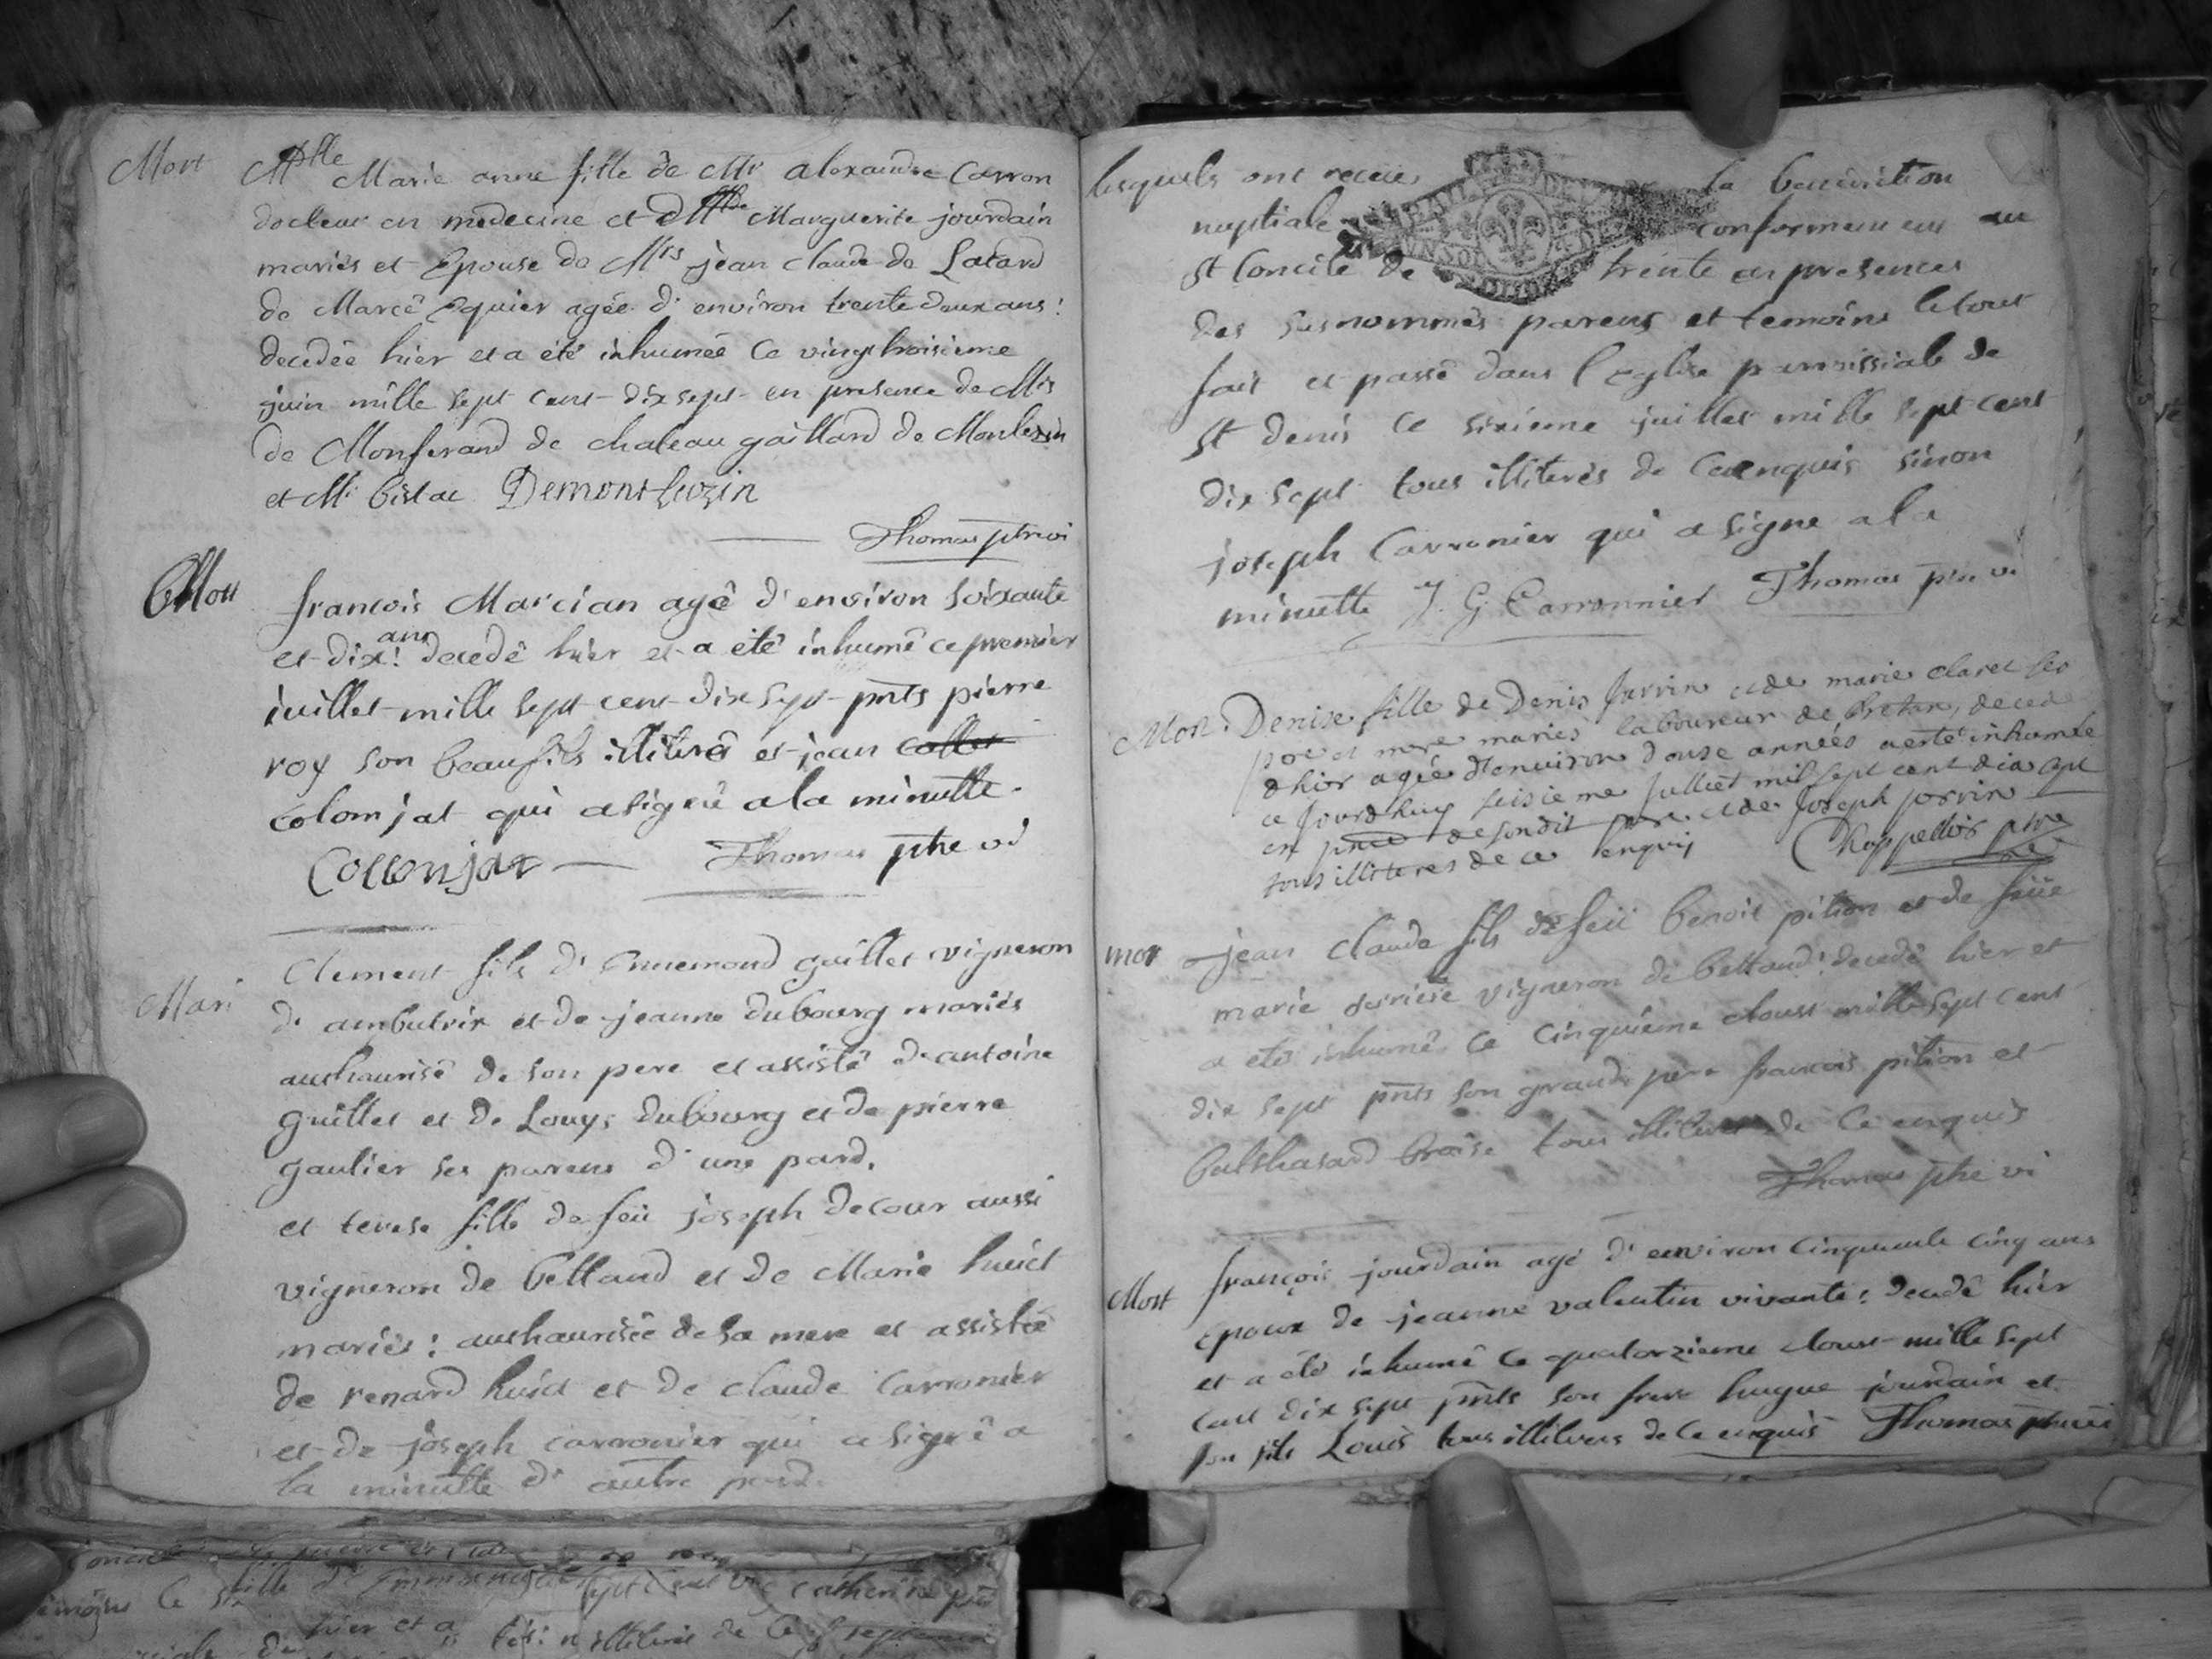 Mort
Mlle Marie anne fille de Mr alexandre Carron
docteur en medecine et de Marguerite jourdain
mariés et Epouse de Mrs jean claude de Latard
de Marcê Equier agée d'environ trente deux ans!
decedée hier et a été inhumée ce vingt troisieme
juin mille sept cent dix sept en presence de Mrs
de Monferand de chateau gaillard de Monlezin
et Mr bistac Demontluzin
Thomas ptre vi
Mort
françois Marcian agé d'environ soixante
et dix ans! decedé hier et a été inhumé ce premier
juillet mille sept cent dix sept pnts pierre
roy son beaufils illiteré et jean collet
colomjat qui a signé a la minutte.
Collonjat Thomas ptre vi
Mari
Clement fils d'Ennemond guillet vigneron
d'ambutrix et de jeanne dubourg mariés
authaurisé de son pere et assisté de antoine
guillet et de Louys dubourg et de pierre
gautier ses parens d'une pard.
et terese fille de feü joseph decour aussi
vigneron de bettand et de Marie huict
mariés: authaurisée de sa mere et assistée
de renard huict et de claude Carronier
et de joseph carronier qui a signé a
la minutte d'autre pard.
lesquels ont receu la benediction
nuptiale conformement au
st Concile de trente en presences
des susnommés parens et temoins le tout
fait et passé dans l'Eglise parroissiale de
st denis ce sixieme juillet mille sept cent
dix sept tous illiterés de ce enquis sinon
joseph Carronier qui a signe a la
minutte J. G. Carronnier Thomas ptre vi
Mort. Denise fille de Denis Jorrin et de marie claret ses
pere et mere mariés laboureur de , decede
d'hier agée d'environ douse années a esté inhumée
ce jourdhuy seisieme Julliet mil sept cent dix sept
en pnce de son dit pere et de Joseph jorrin
tous illiteres de ce enquis Chappellis ptre
mor
jean claude fils de feü benoit pition et de feüe
marie vigneron de bettand! decedé hier et
a été inhumé ce cinquieme doust mille sept cent
dix sept pnts son grand pere francois pition et
balthasard broise tous illiteres de ce enquis
Thomas ptre vi
Mort
françois jourdain agé d'environ cinquante cinq ans
epoux de jeanne valentin vivante! decedé hier
et a été inhumé ce quatorzieme doust mille sept
cent dix sept pnts son frere hugue jourdain et
son fils Louis tous illiteres de ce enquis Thomas ptre vi
fille d'
hier et a